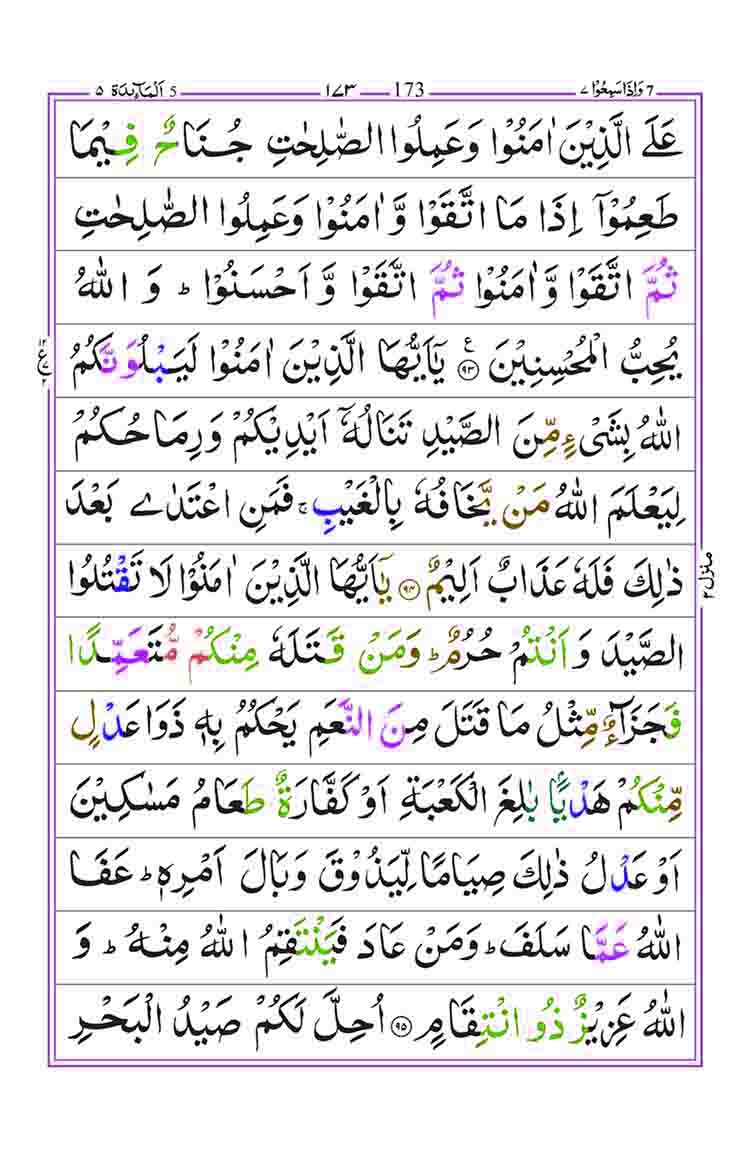 وَاِذَاسَمِعُوْا ٧ 7 173 ١٧٣ اَلْمَآئِدَة ٥ 5
عَلَى الَّذِيْنَ اٰمَنُوْا وَعَمِلُوا الصّٰلِحٰتِ جُنَاحٌ فِيْمَا
طَعِمُوْٓا اِذَا مَا اتَّقَوْا وَّاٰمَنُوْا وَعَمِلُوا الصّٰلِحٰتِ
ثُمَّ اتَّقَوْا وَّاٰمَنُوْا ثُمَّ اتَّقَوْا وَّاَحْسَنُوْا ؕ وَ اللّٰهُ
يُحِبُّ الْمُحْسِنِيْنَ ﴿٩٣﴾ يٰٓاَيُّهَا الَّذِيْنَ اٰمَنُوْا لَيَبْلُوَنَّكُمُ
اللّٰهُ بِشَيْءٍ مِّنَ الصَّيْدِ تَنَالُهٗٓ اَيْدِيْكُمْ وَرِمَاحُكُمْ
لِيَعْلَمَ اللّٰهُ مَنْ يَّخَافُهٗ بِالْغَيْبِ ۚ فَمَنِ اعْتَدٰى بَعْدَ
ذٰلِكَ فَلَهٗ عَذَابٌ اَلِيْمٌ ﴿٩٤﴾ يٰٓاَيُّهَا الَّذِيْنَ اٰمَنُوْا لَا تَقْتُلُوا
الصَّيْدَ وَ اَنْتُمْ حُرُمٌ ؕ وَمَنْ قَتَلَهٗ مِنْكُمْ مُّتَعَمِّدًا
فَجَزَآءٌ مِّثْلُ مَا قَتَلَ مِنَ النَّعَمِ يَحْكُمُ بِهٖ ذَوَا عَدْلٍ
مِّنْكُمْ هَدْيًاۢ بٰلِغَ الْكَعْبَةِ اَوْ كَفَّارَةٌ طَعَامُ مَسٰكِيْنَ
اَوْ عَدْلُ ذٰلِكَ صِيَامًا لِّيَذُوْقَ وَبَالَ اَمْرِهٖ ؕ عَفَا
اللّٰهُ عَمَّا سَلَفَ ؕ وَمَنْ عَادَ فَيَنْتَقِمُ اللّٰهُ مِنْهُ ؕ وَ
اللّٰهُ عَزِيْزٌ ذُو انْتِقَامٍ ﴿٩٥﴾ اُحِلَّ لَكُمْ صَيْدُ الْبَحْرِ
ع
منزل ٢